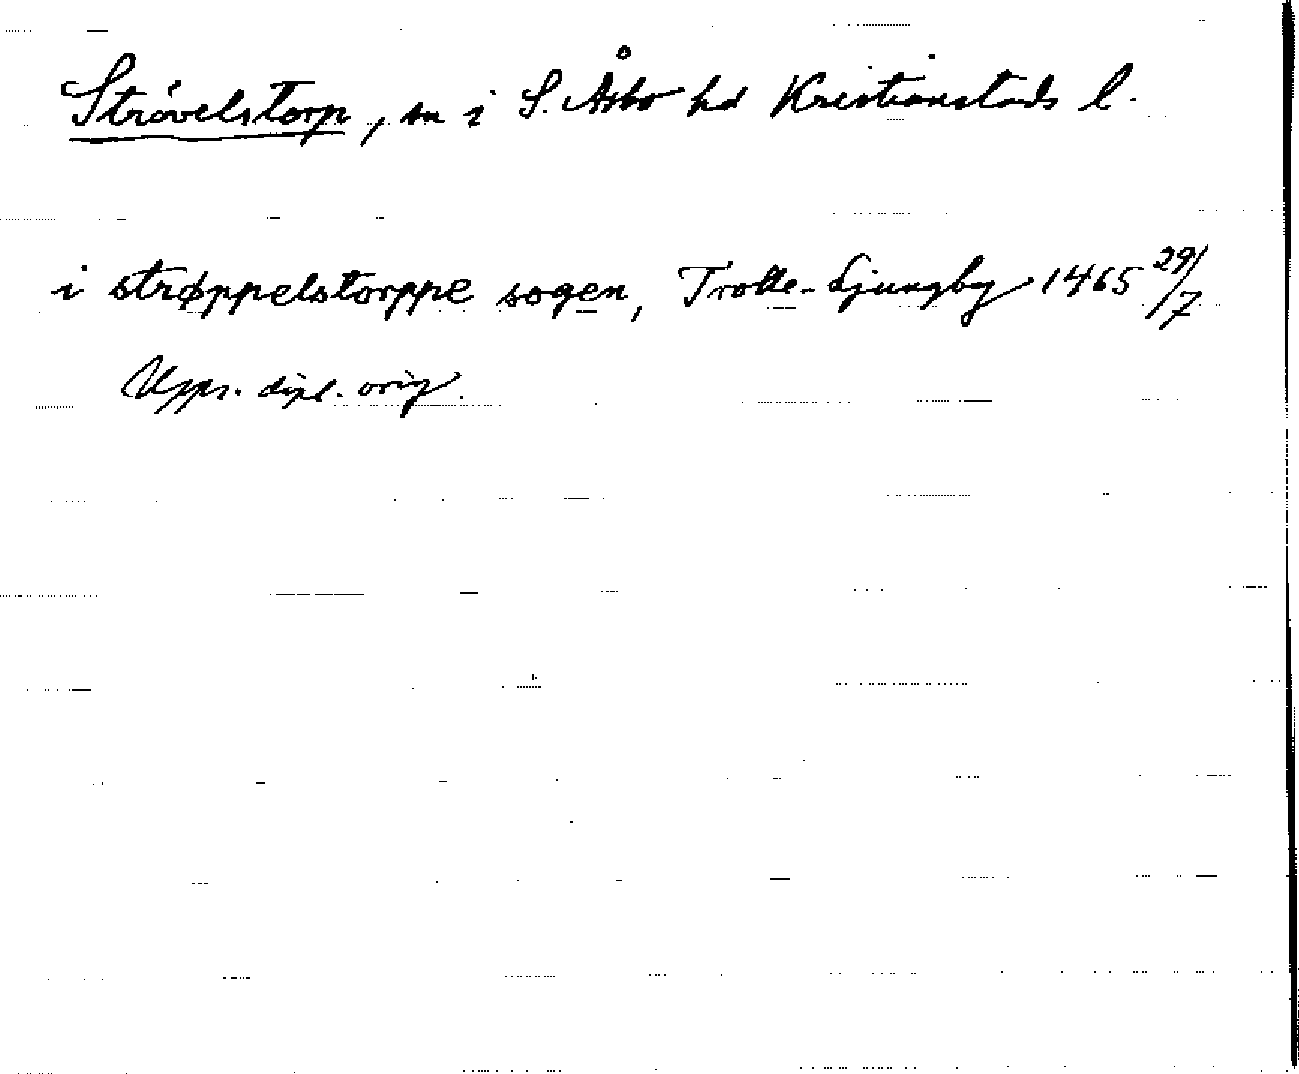 Strövelstorp, sn i S. Åsbo hd Kristianstads l.
i strøppelstorppe sogen, Trolle-Ljungby 1465 29/7
Upps. dipl. orig.